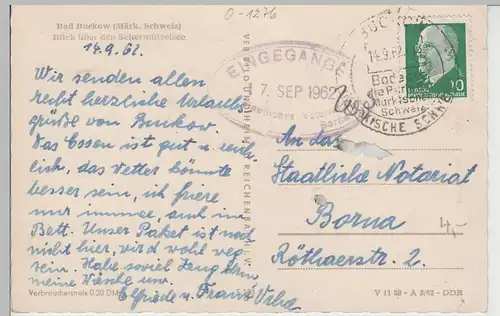 Bad Buckow (Märk. Schweiz)
Blick über den Schermützelsee
14.9.62.
Wir senden allen
recht herzliche Urlaubs-
grüße von Buckow.
Das Essen ist gut u. reich-
lich, das Wetter könnte
besser sein, ich friere
nur immer, auch im
Bett. Unser Paket ist noch
nicht hier, wird wohl weg
sein. Habe soviel Zeug dann
meine Wäsche usw.
Elfriede u. Franz
Verbraucherpreis 0.20 DM
0-1276
EINGEGANGEN
7. SEP 1962
Borna
BUCKOW
14.9.62
Bad
die Perle
Märkischen
Schweiz
MÄRKISCHE SCHWEIZ
10
An das
Staatliche Notariat
Borna
Röthaerstr. 2.
4,-
V 11 28 - A 2/62 - DDR